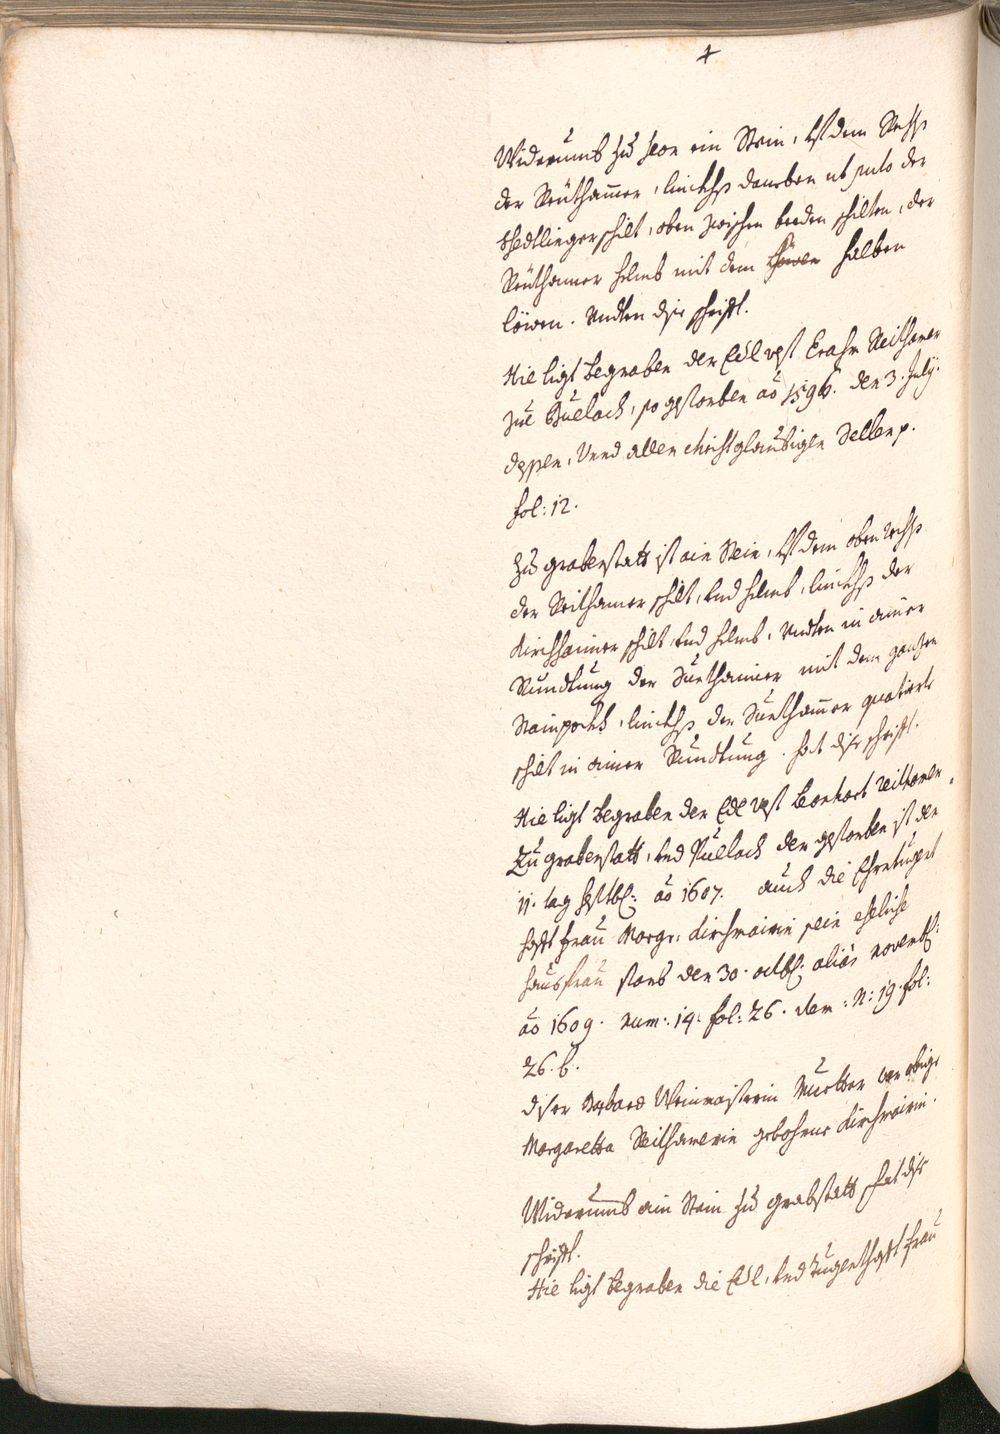 Widerumb zu seon ein Stein, Ist dem Rechß
der Reuthamer, linckhß daneben ut puto der
Hedtlinger schilt, oben zwischen beeden schilten, der
Reuthamer helmb mit dem halben
löwen. Undten dise schrifft.
Hie ligt Begraben der Edl vest Erasm Reithamer
zue Puelach, so gestorben aõ 1596. den 3. July.
deßen, Unnd allen Christglaubigen Sellen p.
fol: 12.
Zu grabenstatt ist ain Stein, Ist dem oben rechß
der Reithamer schilt, und helmb, linckhß der
Kirchhaimer schilt und helmb, Undten in ainer
Rundtung der Surthaimer mit dem ganzen
Stainpockh, linckhß der Surthamer quatierte
schilt in ainer Rundtung. hat dise schrifft.
Hie ligt Begraben der Edl Vest Leonhart Reithamer
Zu grabenstatt, und Puelach der gestorben ist den
11. tag aõ 1607. auch die Ehrntugent
hafft frau Margr: Kirchmairin sein eheliche
hausfrau starb den 30. octb: aliàs novemb:
aõ 1609. num: 14: fol: 26. N: 19. fol:
26. b.
diser Barbara Weinmaisterin Muetter obige
Margaretta Reithamerin gebohrne Kirchmairin.
Widerumb ain Stein zu grabstatt hat dise
schrifft.
Hie ligt Begraben die Edl, und tugenthafft frau